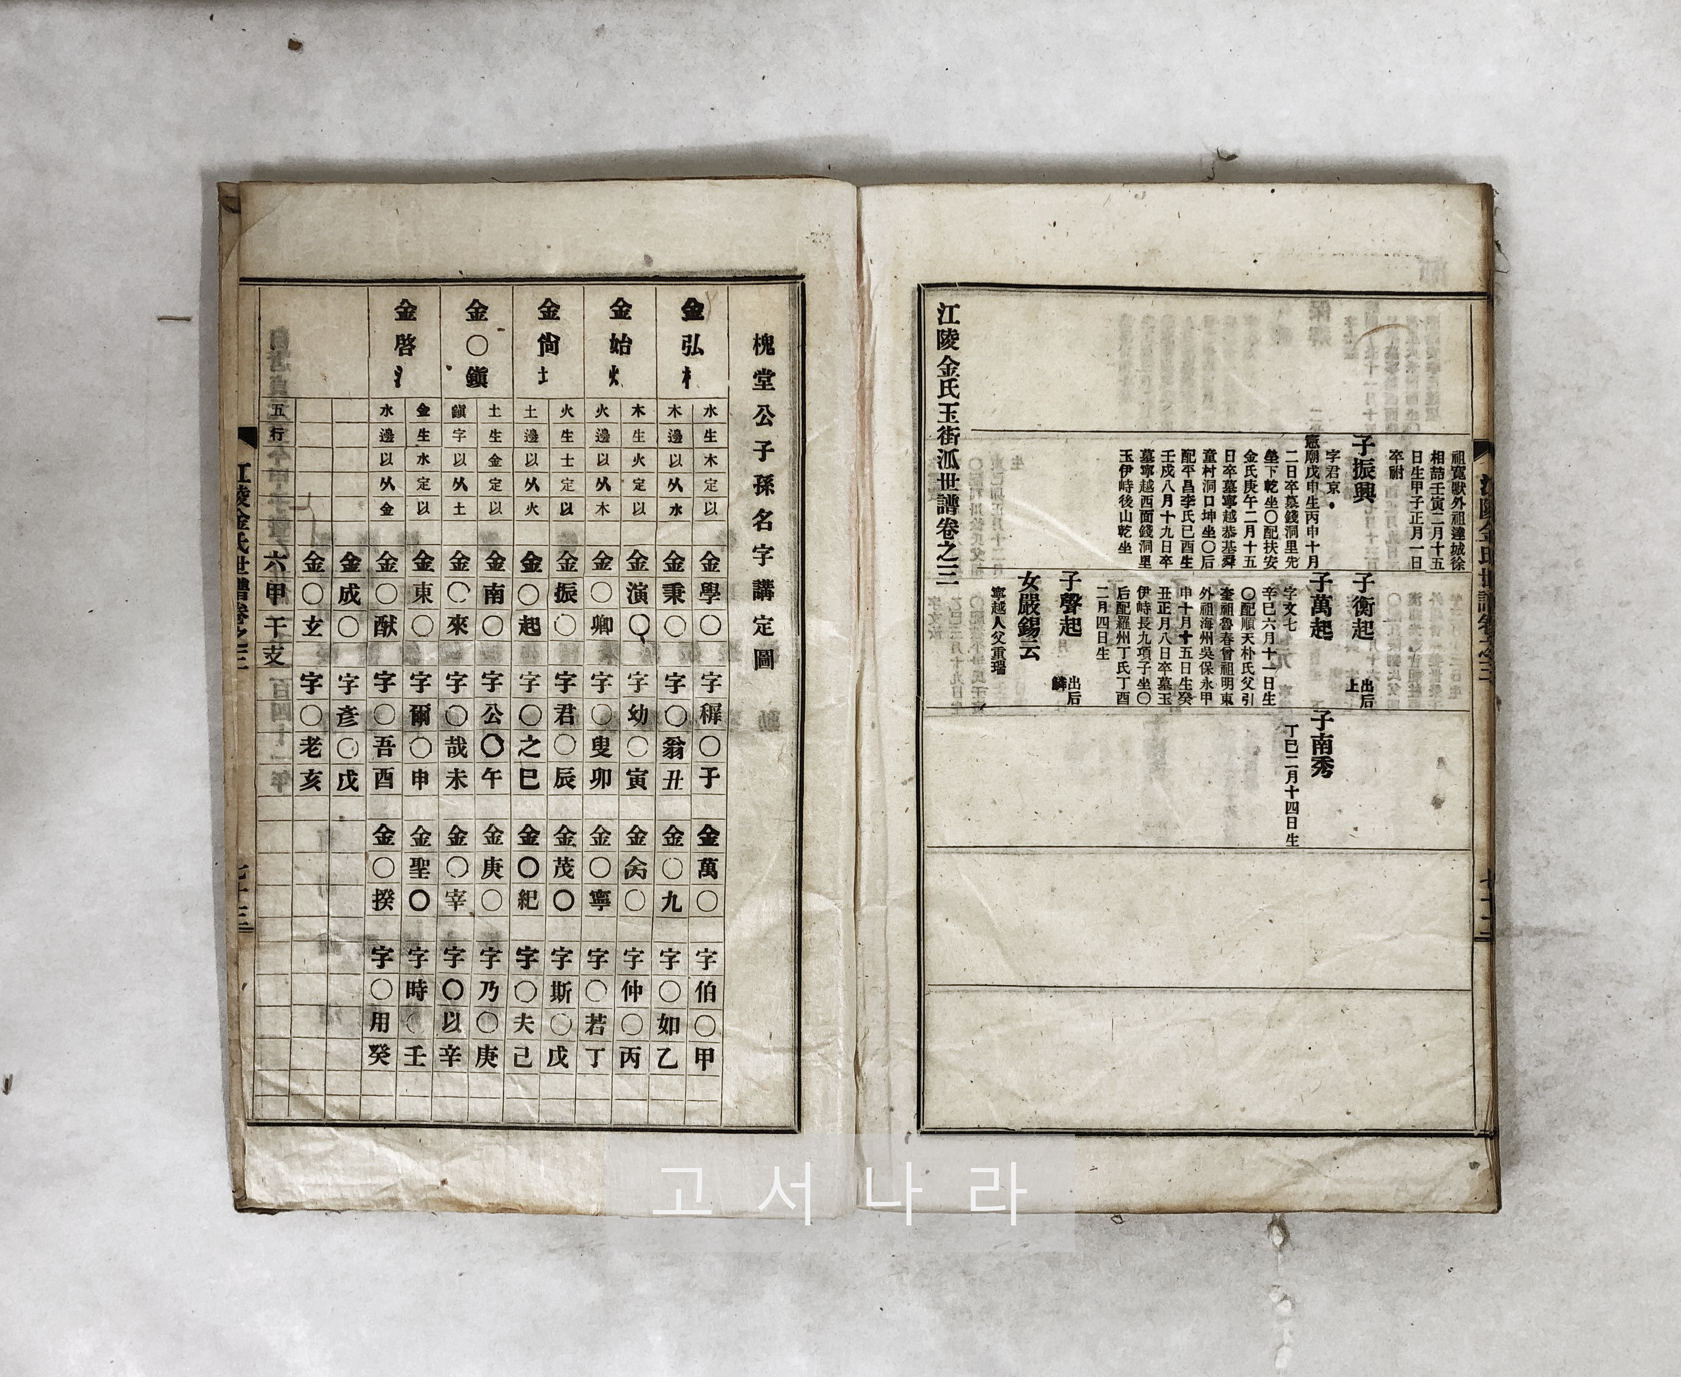 祖寬猷外祖達城徐
相喆壬寅二月十五
日生甲子正月一日
卒祔
子振興
字君京
憲廟戊申生丙申十月
二日卒墓錢洞里先
塋下乾坐〇配扶安
金氏庚午二月十五
日卒墓寧越恭基舜
童村洞口坤坐〇后
配平昌李氏已酉生
壬戌八月十九日卒
墓寧越西面錢洞里
玉伊峙後山乾坐
子衡起
出后
上
子萬起
字文七
辛巳六月十一日生
〇配順天朴氏父引
奎祖魯春曾祖明東
外祖海州吳保永甲
申十月十五日生癸
丑正月八日卒墓玉
伊峙長九項子坐〇
后配羅州丁氏丁酉
二月四日生
子聲起
出后
麟
女嚴錫云
寧越人父重瑞
子南秀
丁巳二月十四日生
江陵金氏玉街泒世譜卷之三
七十二
槐堂公子孫名字講定圖
金弘
金始
金尙
金〇鎭
金啓
水生木定以
木邊以外水
木生火定以
火邊以外木
火生土定以
土邊以外火
土生金定以
鎭字以外土
金生水定以
水邊以外金
五行
金學〇 字穉〇子
金秉〇 字〇翁丑
金演〇 字幼〇寅
金〇卿 字〇叟卯
金振〇 字君〇辰
金〇起 字〇之巳
金南〇 字公〇午
金〇來 字〇哉未
金東〇 字爾〇申
金〇猷 字〇吾酉
金成〇 字彥〇戌
金〇玄 字〇老亥
六甲干支
金萬〇 字伯〇甲
金〇九 字〇如乙
金〇 字仲〇丙
金〇寧 字〇若丁
金茂〇 字斯〇戊
金〇紀 字〇夫己
金庚〇 字乃〇庚
金〇宰 字〇以辛
金聖〇 字時〇壬
金〇揆 字〇用癸
江陵金氏世譜卷之三
七十三
고서나라